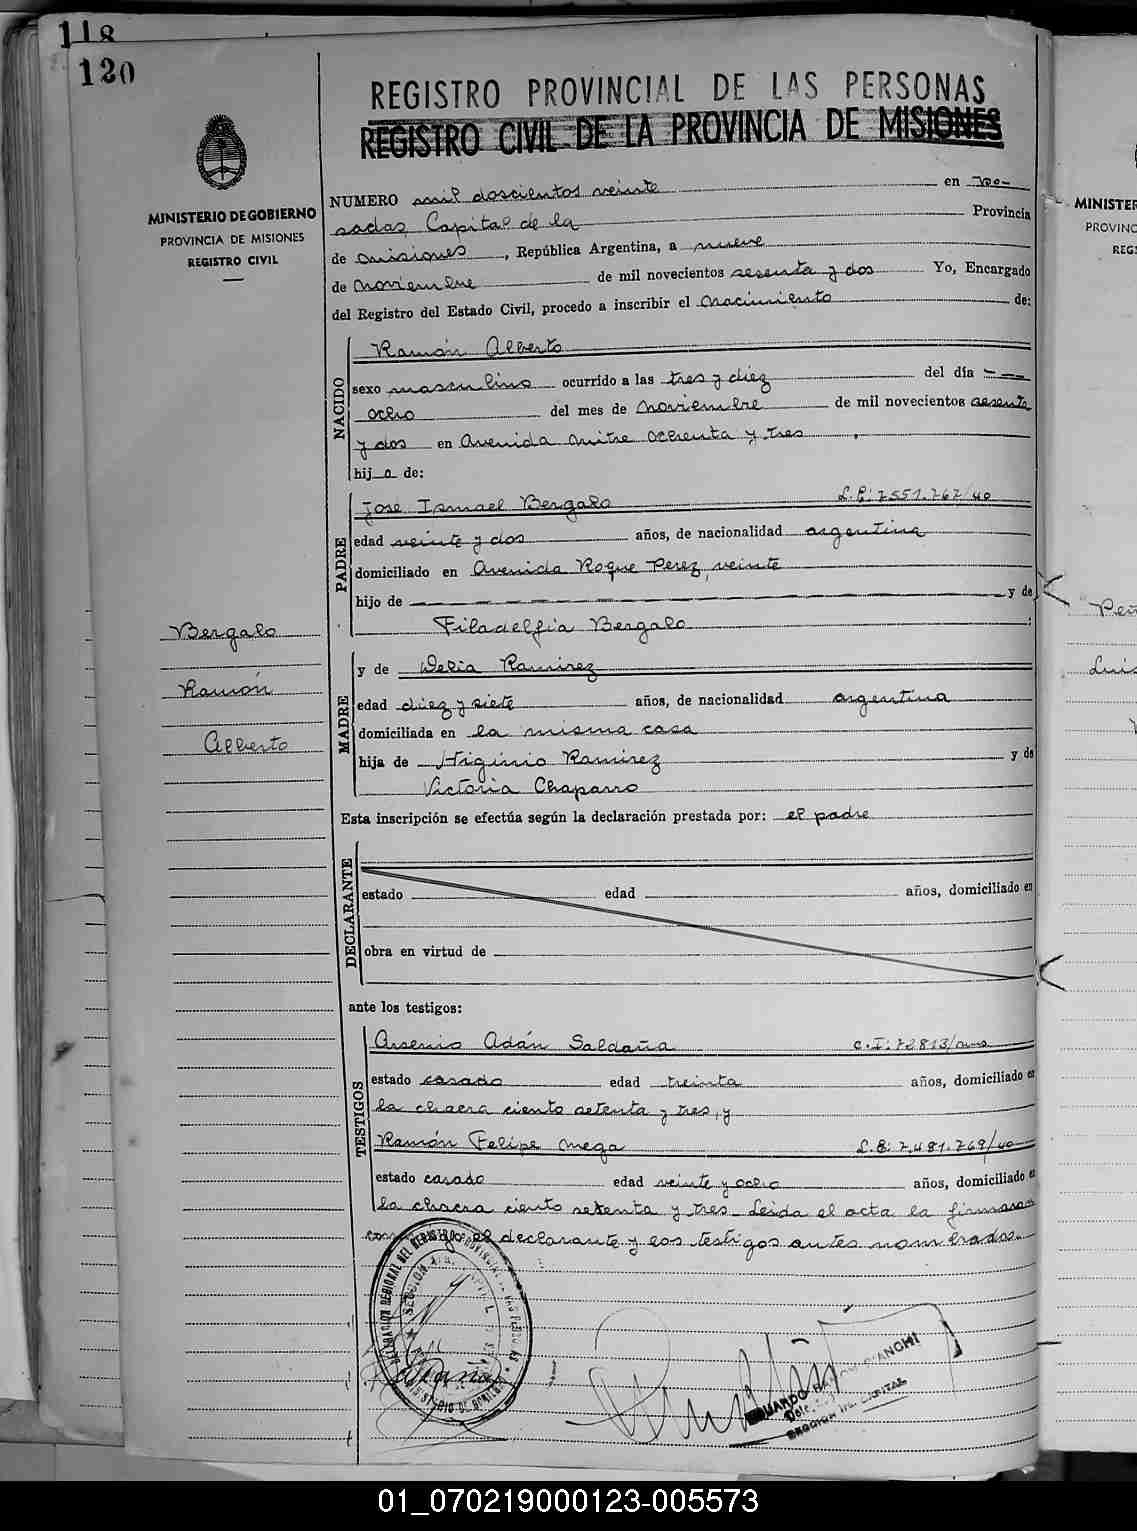 118
120
REGISTRO PROVINCIAL DE LAS PERSONAS
REGISTRO CIVIL DE LA PROVINCIA DE MISIONES
MINISTERIO DE GOBIERNO
PROVINCIA DE MISIONES
REGISTRO CIVIL
NUMERO mil doscientos veinte en Po-
sadas, Capital de la Provincia
de Misiones, República Argentina, a nueve
de Noviembre de mil novecientos sesenta y dos Yo, Encargado
del Registro del Estado Civil, procedo a inscribir el Nacimiento de:
NACIDO
Ramón Alberto
sexo masculino ocurrido a las tres y diez del día
ocho del mes de Noviembre de mil novecientos sesenta
y dos en Avenida Mitre ochenta y tres.
hijo de:
PADRE
José Ismael Bergalo L.E: 7551.767/40
edad veinte y dos años, de nacionalidad argentina
domiciliado en Avenida Roque Perez, veinte
hijo de y de
Filadelfia Bergalo :
Bergalo
Ramón
Alberto
MADRE
y de Delia Ramirez
edad diez y siete años, de nacionalidad argentina
domiciliada en la misma casa
hija de Higinio Ramirez y de
Victoria Chaparro
Esta inscripción se efectúa según la declaración prestada por: el padre
DECLARANTE
estado edad años, domiciliado en
obra en virtud de
ante los testigos:
TESTIGOS
Arsenio Adán Saldaña C.I: 72813/
estado casado edad treinta años, domiciliado en
la chacra ciento setenta y tres, y
Ramón Felipe Mega L.E: 7.481.769/40
estado casado edad veinte y ocho años, domiciliado en
la chacra ciento setenta y tres. Leida el acta la firmaron
el declarante y los testigos antes nombrados.
DELEGACION REGIONAL DEL REGISTRO PROVINCIAL DE LAS PERSONAS
SECCION
MINISTERIO DE GOBIERNO
BIANCHI
SECCION CAPITAL
MINISTER
PROVINC
REG
Peñ
Luis
01_070219000123-005573